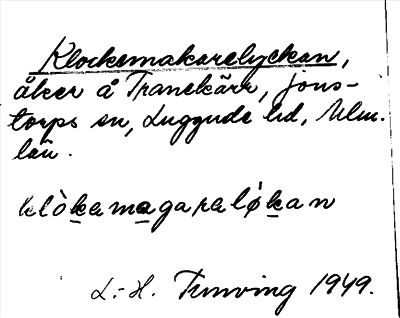 Klockemakarelyckan,
åker å Tranekärr, Jons-
torps sn, Luggude hd, Mlm.
län.
klòkamagaraløkan
L.-H. Tunving 1949.